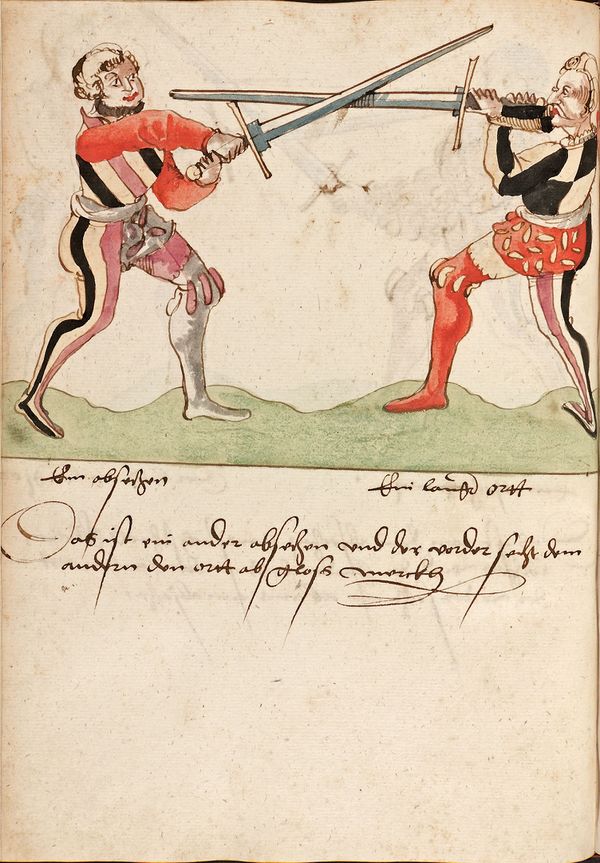 Ein absetzen
Ein langer ortt
Das ist ein ander absetzen vnd der vorder setzt dem
andern den ortt ab glosß merckh